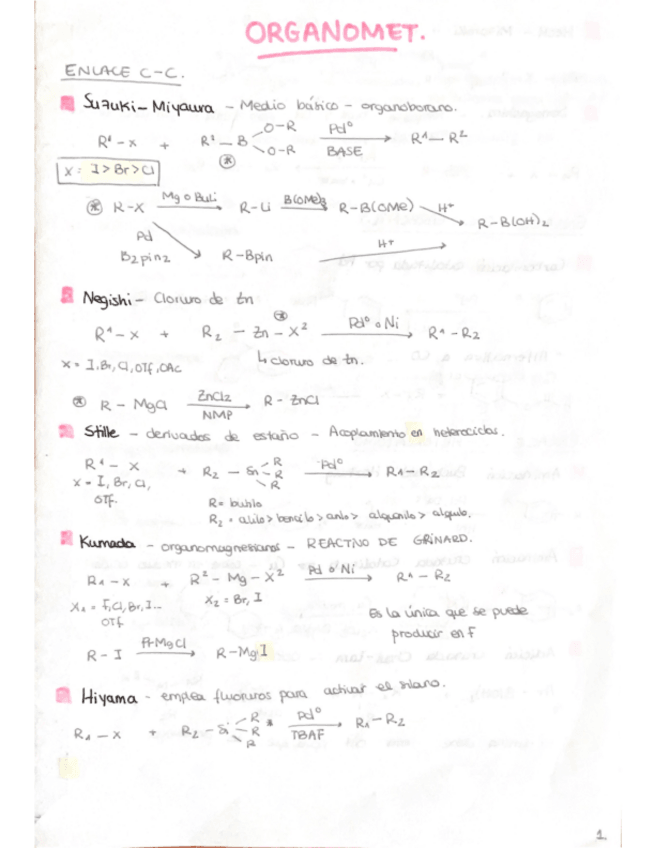 ORGANOMET.
ENLACE C-C.
Suzuki-Miyaura - Medio básico - organoborano.
R¹-X + R²-B O-R O-R Pd⁰ BASE R¹-R²
X = I > Br > Cl
R-X Mg o Buli R-Li B(OMe)₃ R-B(OMe) H⁺ R-B(OH)₂
Pd B₂pin₂ R-Bpin H⁺
Negishi - Cloruro de Zn
R¹-X + R₂-Zn-X² Pd⁰ o Ni R¹-R₂
X = I, Br, Cl, OTf, OAc ↳ cloruro de Zn.
R-MgCl ZnCl₂ NMP R-ZnCl
Stille - derivados de estaño - Acoplamiento en heterociclos.
R¹-X + R₂-Sn R R R Pd⁰ R₁-R₂
X = I, Br, Cl,
OTf.
R = butilo
R₂ = alilo > bencilo > arilo > alquenilo > alquilo.
Kumada - organomagnesianos - REACTIVO DE GRINARD.
R₁-X + R²-Mg-X² Pd o Ni R₁-R₂
X₁ = F, Cl, Br, I... X₂ = Br, I
OTf
Es la única que se puede
producir en F
R-I MgCl R-MgI
Hiyama - emplea fluoruros para activar el silano.
R₁-X + R₂-Si R R R Pd⁰ TBAF R₁-R₂
1